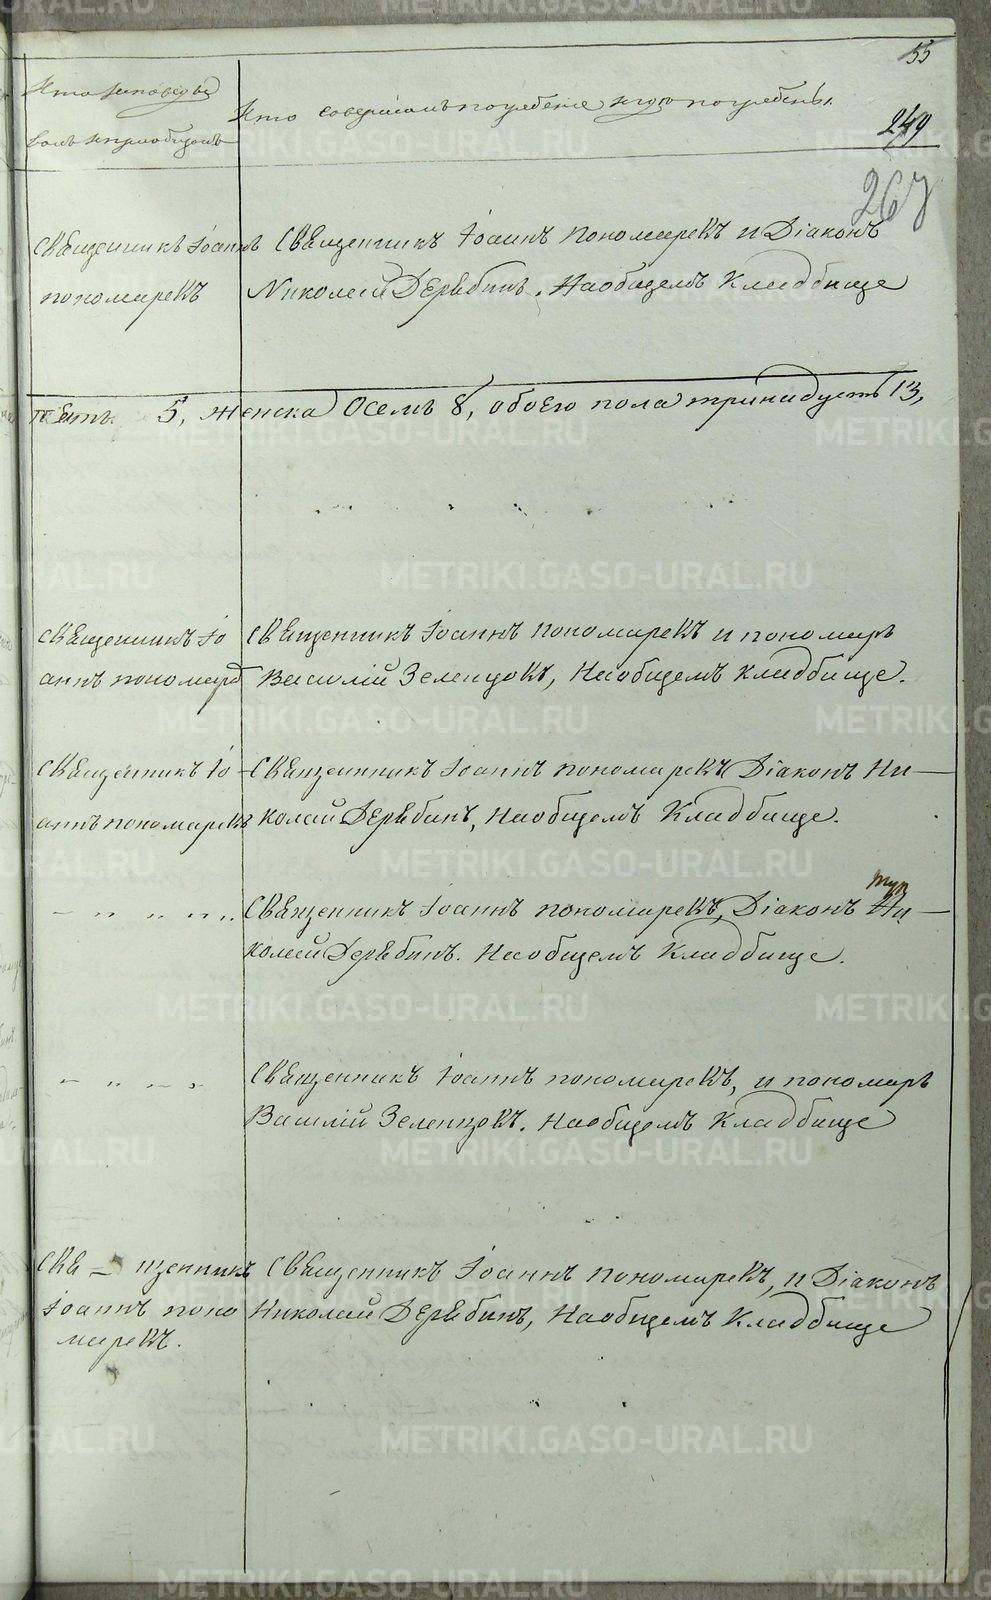 55
Кто исповеды
валъ и приобщалъ
Кто совершалъ погребеніе и гдѣ погребены.
249
267
Священникъ Іоаннъ
пономаревъ
Священникъ Іоаннъ пономаревъ и Діаконъ
Николай Дерябинъ. На общемъ Кладбище
пять. 5, женска Осемь 8, обоего пола тринадцать 13,
Священникъ Іо
аннъ пономарев
Священникъ Іоаннъ пономаревъ и пономарь
Василій Зеленцовъ, На общемъ Кладбище.
Священникъ Іо-
аннъ пономаревъ
Священникъ Іоаннъ пономаревъ Діаконъ Ни-
колай Дерябинъ, На общемъ Кладбище.
Священникъ Іоаннъ пономаревъ, Діаконъ Ни-
колай Дерябинъ. На общемъ Кладбище.
Священникъ Іоаннъ пономаревъ, и пономарь
Василій Зеленцовъ. На общемъ Кладбище
Свя- щенникъ
Іоаннъ поно
маревъ.
Священникъ Іоаннъ пономаревъ, и Діаконъ
Николай Дерябинъ, На общемъ Кладбище
METRIKI.GASO-URAL.RU